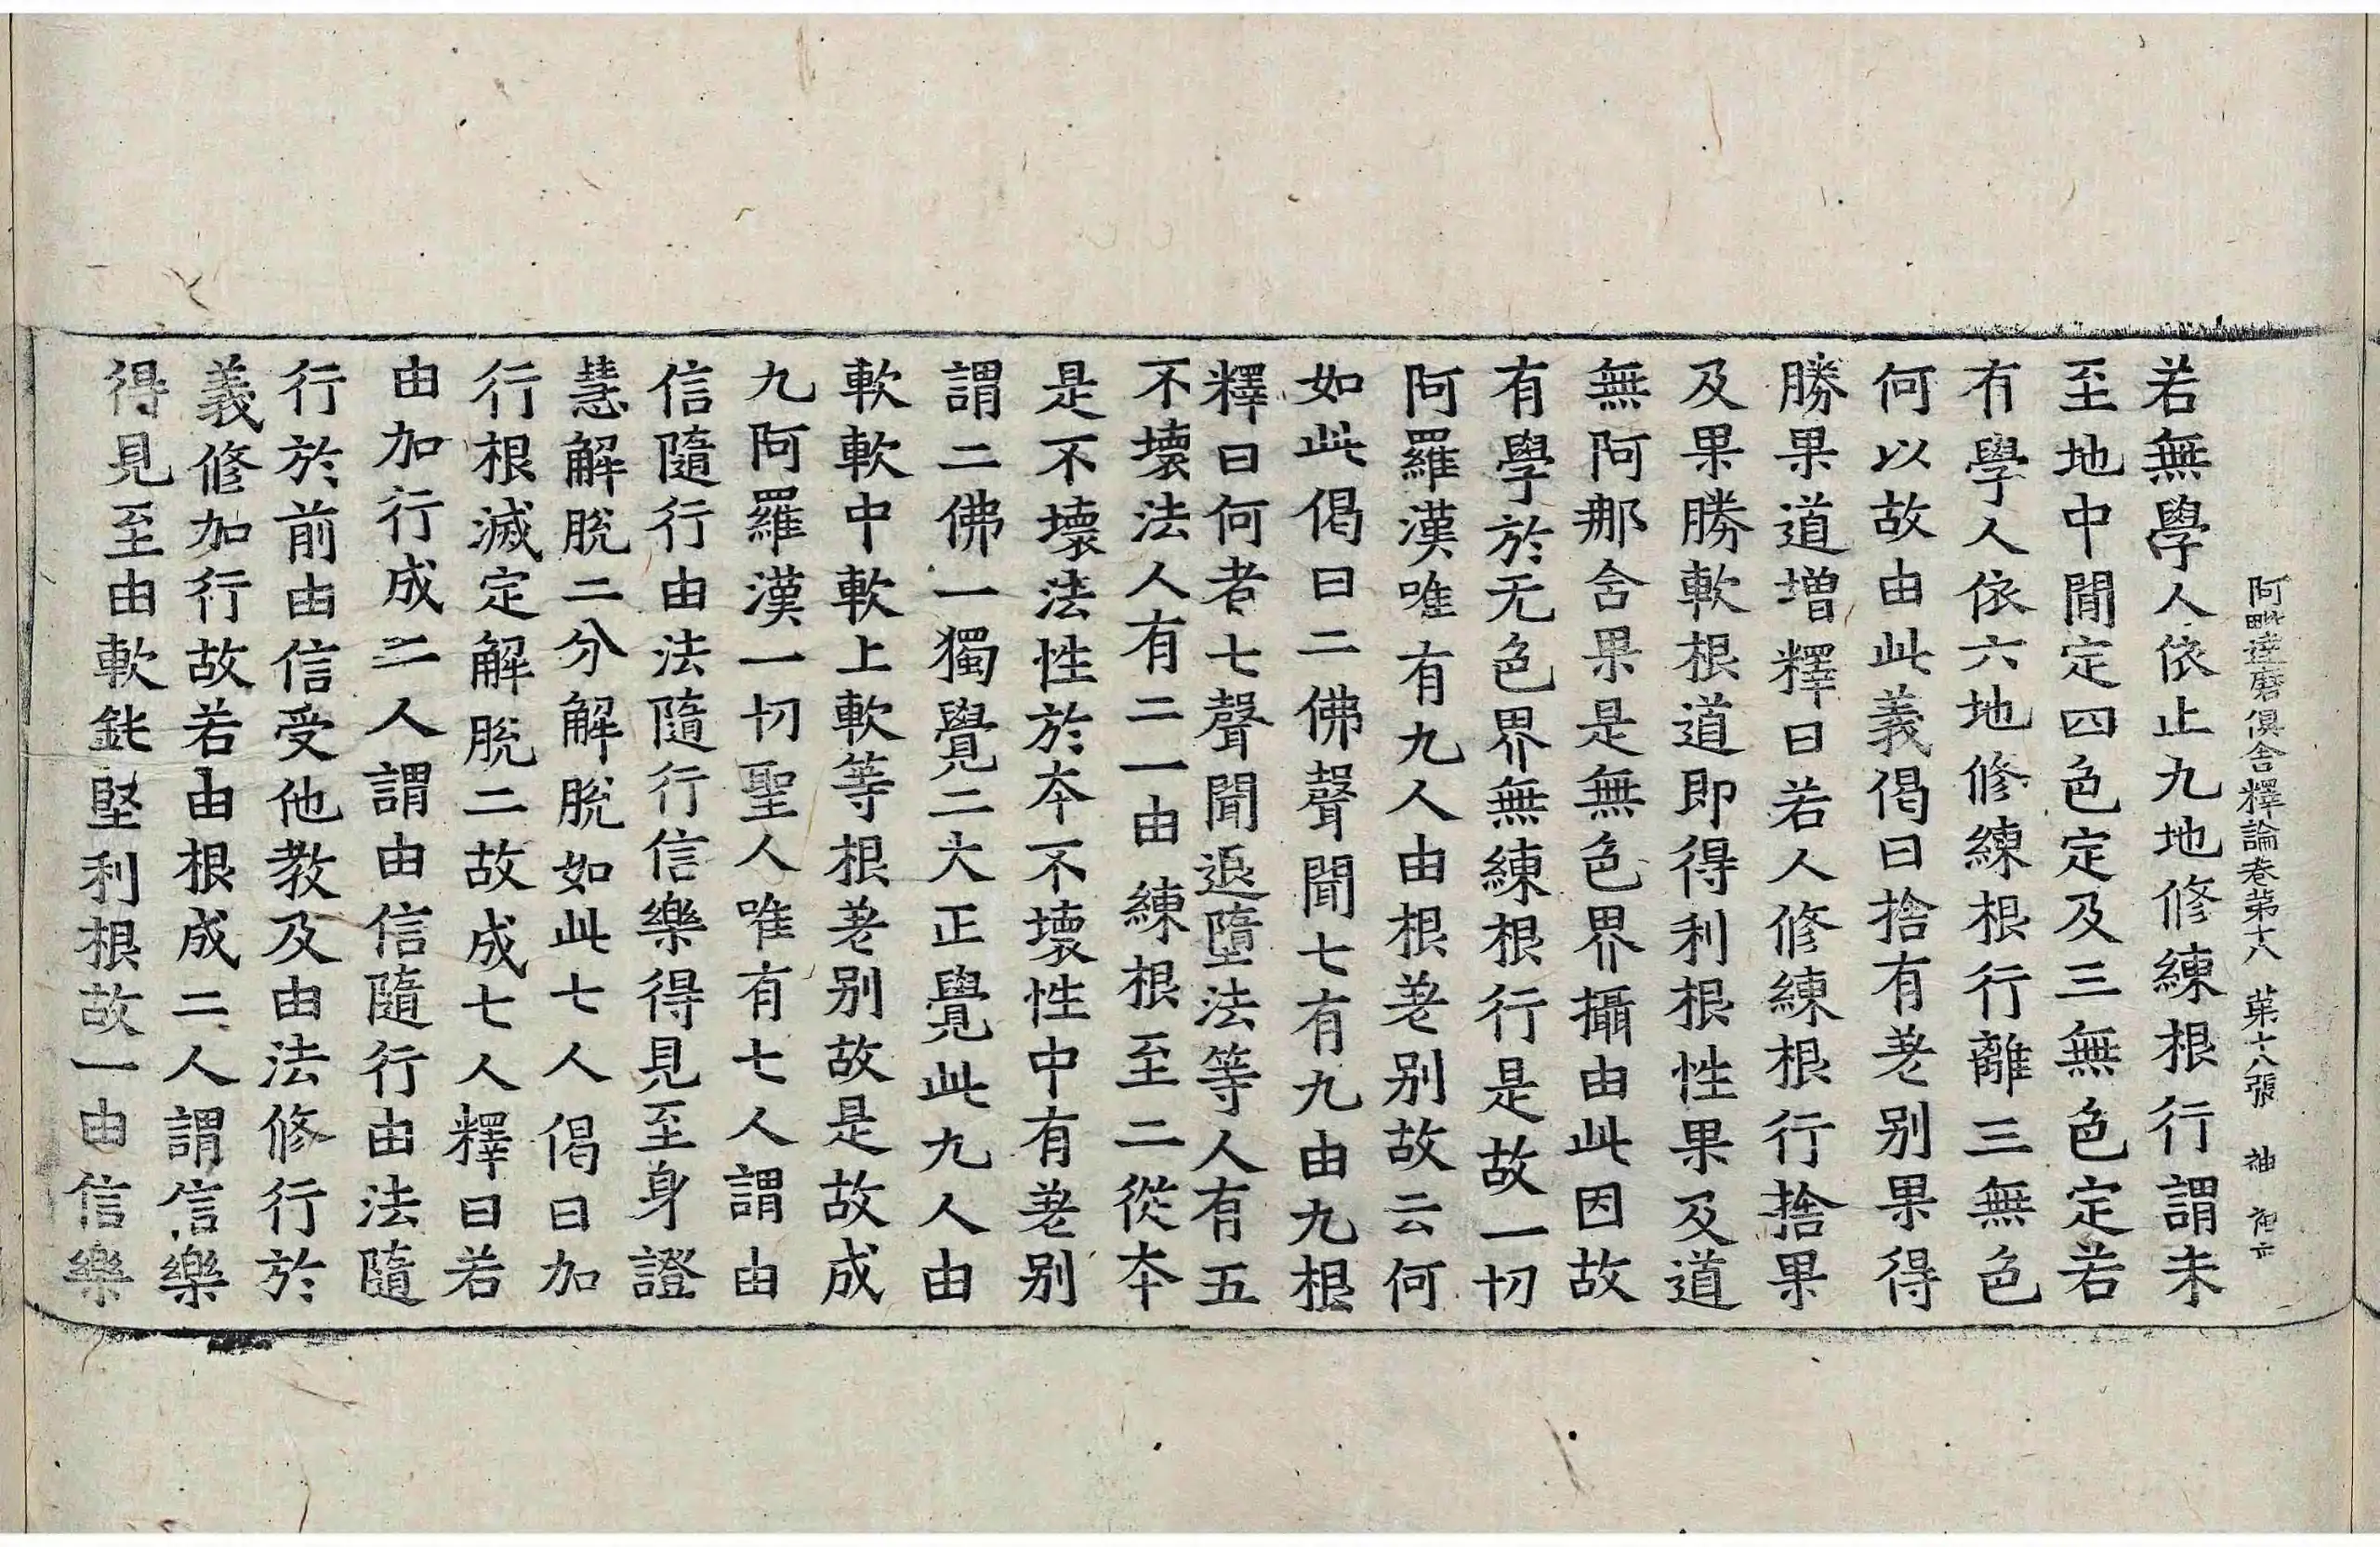 阿毗達磨俱舍釋論卷第十八 苐十八張
若無學人依止九地修練根行謂未
至地中閒定四色定及三無色定若
有學人依六地修練根行離三無色
何以故由此義偈曰捨有差别果得
勝果道增釋曰若人修練根行捨果
及果勝軟根道即得利根性果及道
無阿那含果是無色界攝由此因故
有學於无色界無練根行是故一切
阿羅漢唯有九人由根差别故云何
如此偈曰二佛聲聞七有九由九根
釋曰何者七聲聞退墮法等人有五
不壞法人有二一由練根至二從夲
是不壞法性於夲不壞性中有差别
謂二佛一獨覺二大正覺此九人由
軟軟中軟上軟等根差别故是故成
九阿羅漢一切聖人唯有七人謂由
信隨行由法隨行信樂得見至身證
慧解脫二分解脫如此七人偈曰加
行根滅定解脫二故成七人釋曰若
由加行成二人謂由信隨行由法隨
行於前由信受他教及由法修行於
義修加行故若由根成二人謂信樂
得見至由軟鈍堅利根故一由信樂